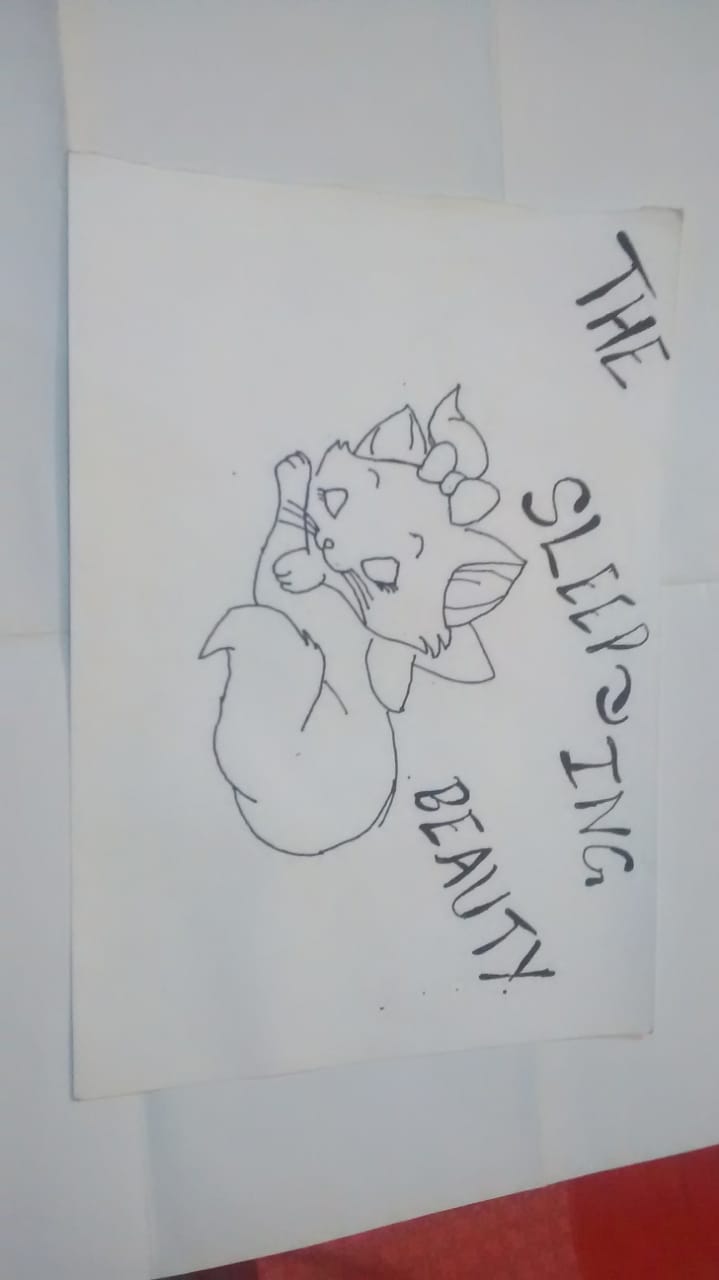 THE
SLEEPING
BEAUTY